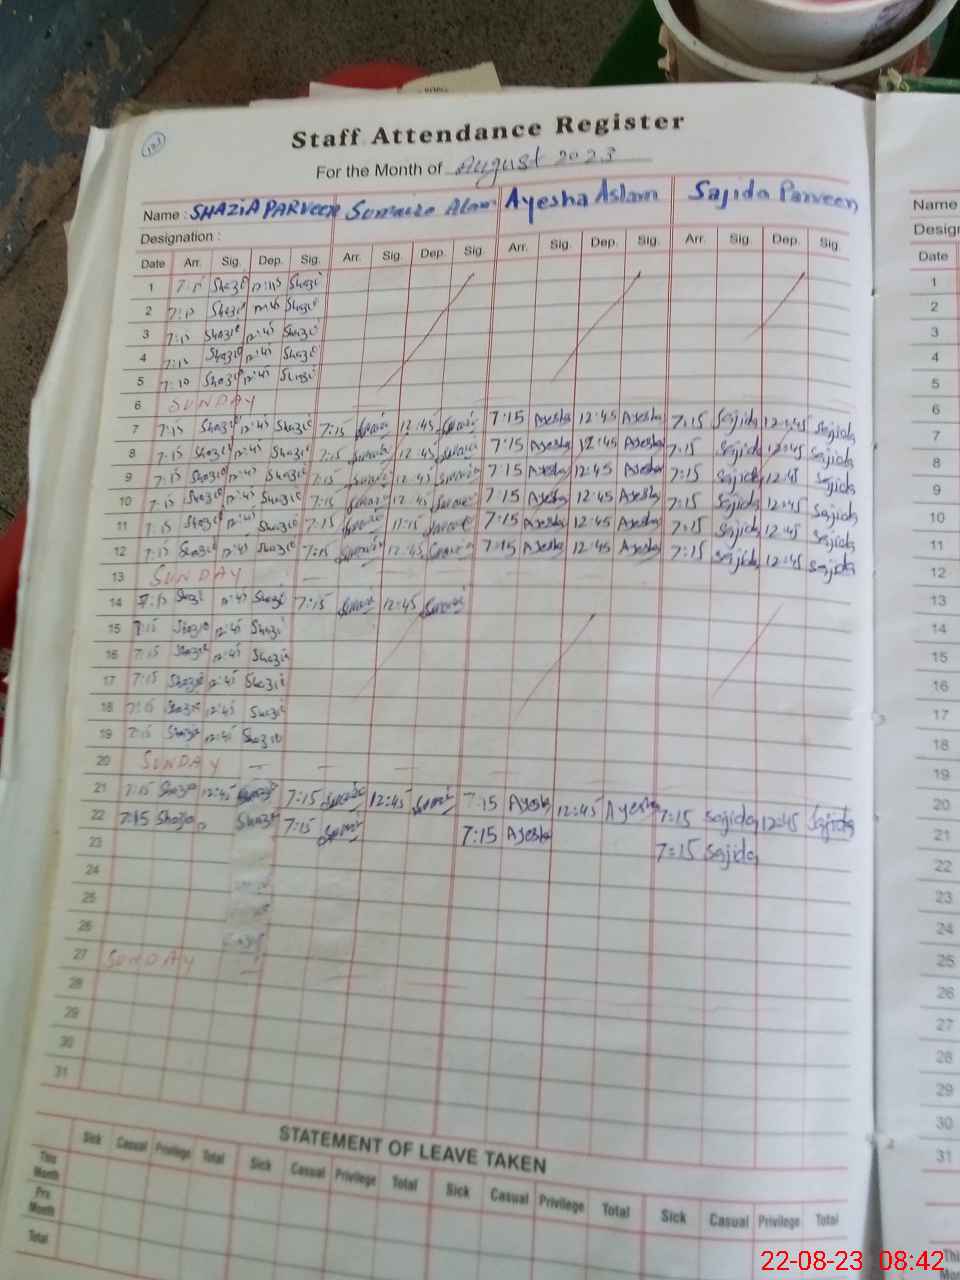 Staff Attendance Register
For the Month of August 2023
Name : SHAZiA PARVEEN Sumaira Alam Ayesha Aslam Sajida Parveen
Designation :
Date Arr. Sig. Dep. Sig. Arr. Sig. Dep. Sig. Arr. Sig. Dep. Sig. Arr. Sig. Dep. Sig.
1 7:15 Shazi Shazi
2 7:15 Shazi 12:45 Shazi
3 7:15 Shazi 12:45 Shazi
4 7:15 Shazi 12:45 Shazi
5 7:10 Shazi 12:45 Shazi
6 SUNDAY
7 7:15 Shazi 12:45 Shazi 7:15 12:45 7:15 Ayesha 12:45 Ayesha 7:15 Sajida 12:45 Sajida
8 7:15 Shazi 12:45 Shazi 7:15 12:45 7:15 Ayesha 12:45 Ayesha 7:15 Sajida 12:45 Sajida
9 7:15 Shazi 12:45 Shazi 7:15 12:45 7:15 Ayesha 12:45 Ayesha 7:15 Sajida 12:45 Sajida
10 7:15 Shazi 12:45 Shazi 7:15 12:45 7:15 Ayesha 12:45 Ayesha 7:15 Sajida 12:45 Sajida
11 7:15 Shazi 12:45 Shazi 7:15 7:15 Ayesha 12:45 Ayesha 7:15 Sajida 12:45 Sajida
12 7:15 Shazi 12:45 Shazi 7:15 12:45 7:15 Ayesha 12:45 Ayesha 7:15 Sajida 12:45 Sajida
13 SUNDAY
14 7:15 Shazi 12:45 Shazi 7:15 12:45
15 7:15 Shazi 12:45 Shazi
16 7:15 Shazi 12:45 Shazi
17 7:15 Shazi 12:45 Shazi
18 7:15 Shazi 12:45 Shazi
19 7:15 Shazi 12:45 Shazi
20 SUNDAY
21 7:15 Shazi 12:45 7:15 12:45 7:15 Ayesha 12:45 Ayesha 7:15 Sajida 12:45 Sajida
22 7:15 Shazia Shazi 7:15 7:15 Ayesha 7:15 Sajida
23
24
25
26
27 SUNDAY
28
29
30
31
STATEMENT OF LEAVE TAKEN
Sick Casual Privilege Total Sick Casual Privilege Total Sick Casual Privilege Total Sick Casual Privilege Total
This Month
Pre Month
Total
Name
Date
1
2
3
4
5
6
7
8
9
10
11
12
13
14
15
16
17
18
19
20
21
22
23
24
25
26
27
28
29
30
31
22-08-23 08:42